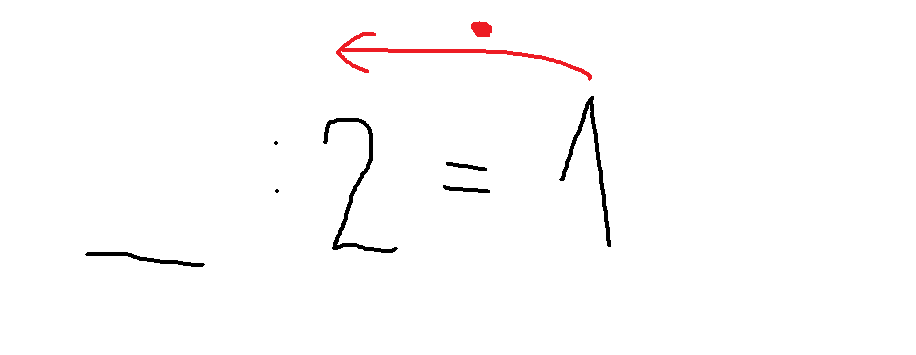 __ : 2 = 1